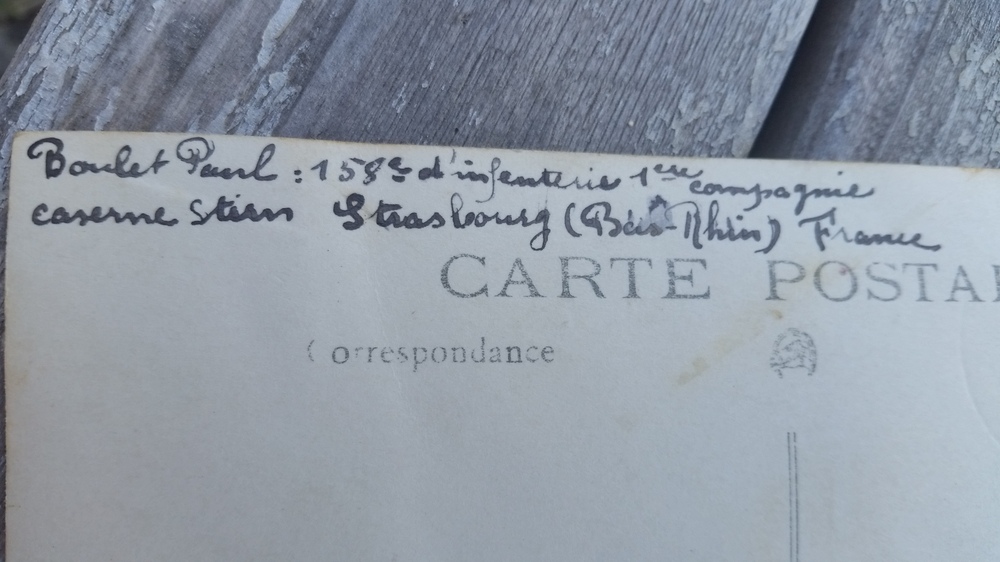 Boulet Paul : 158e d'infanterie 1ere compagnie
caserne Stirn Strasbourg (Bas-Rhin) France
CARTE POSTA
Correspondance